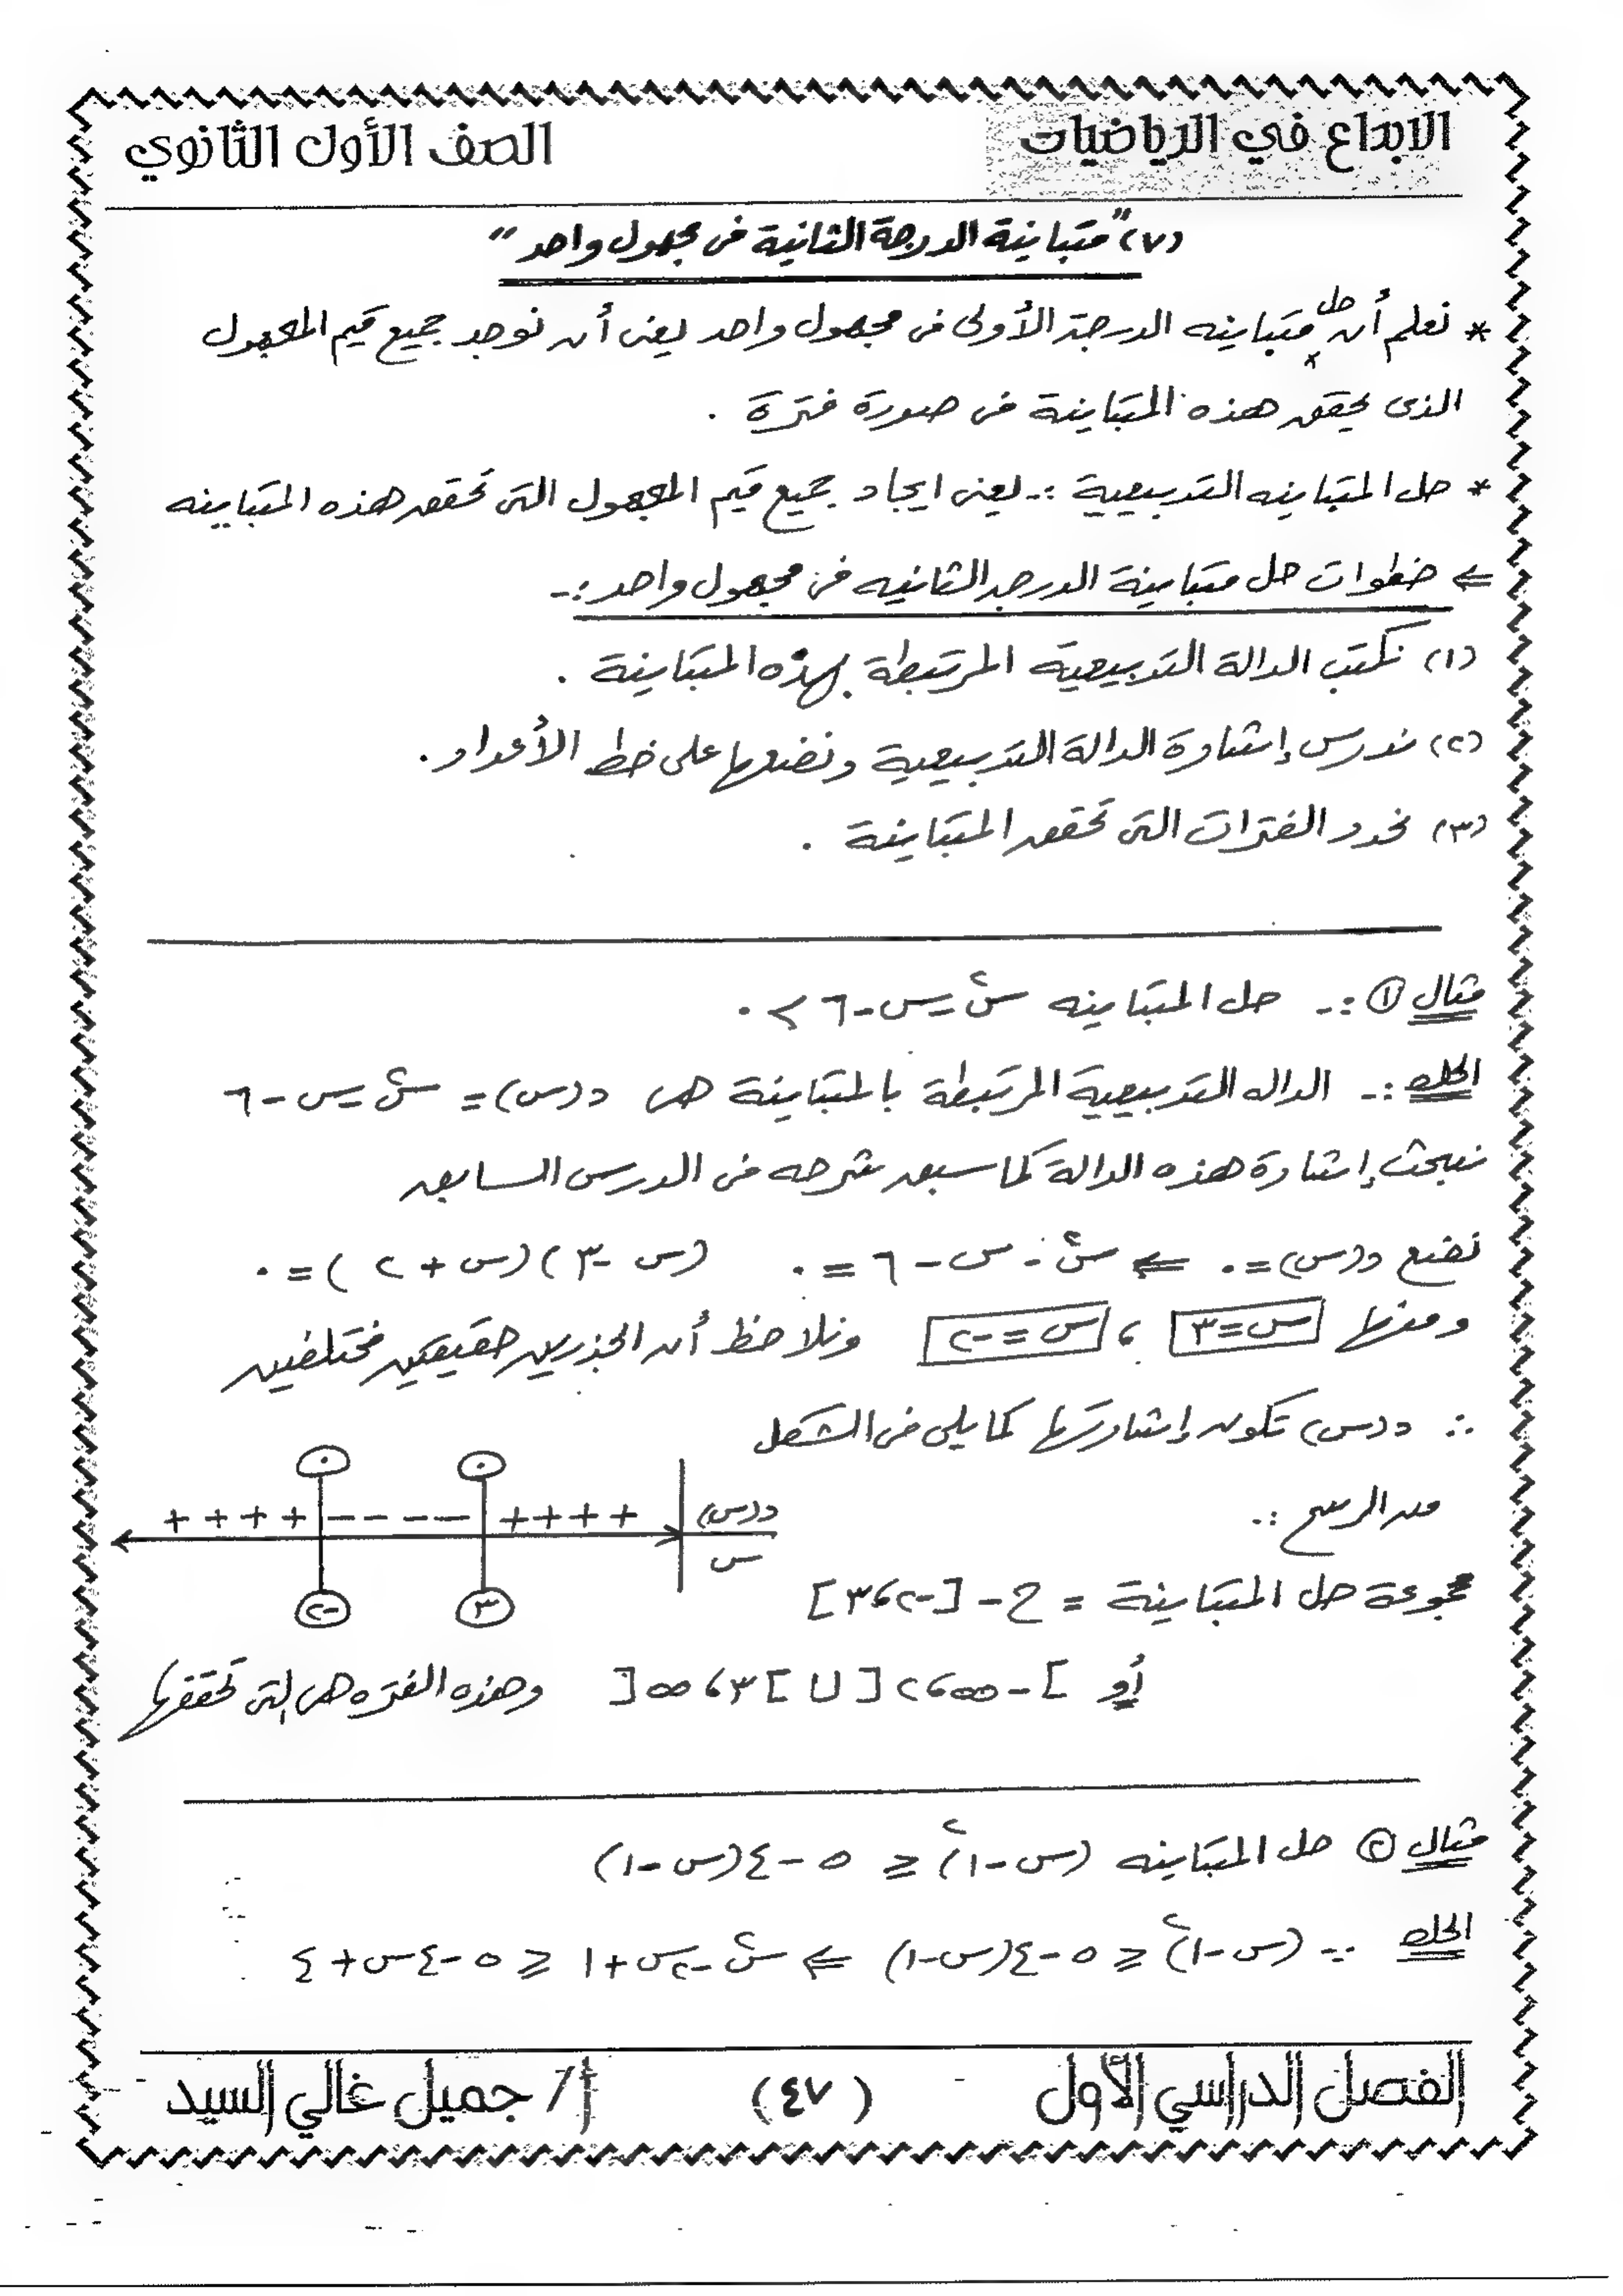 الابداع في الرياضيات
الصف الأول الثانوي
(٧) "متباينة الدرجة الثانية فى مجهول واحد"
* نعلم أن حل متباينه الدرجة الأولى فى مجهول واحد يعنى أن نوجد جميع قيم المجهول
الذى يحقق هذه المتباينة فى صورة فترة .
* حل المتباينه التربيعية :- يعنى ايجاد جميع قيم المجهول التى تحقق هذه المتباينه
⇐ خطوات حل متباينة الدرجه الثانيه فى مجهول واحد :-
(١) نكتب الدالة التربيعية المرتبطة بهذه المتباينة .
(٢) ندرس إشارة الدالة التربيعية ونضعها على خط الأعداد .
(٣) نحدد الفترات التى تحقق المتباينة .
مثال ① :- حل المتباينه س٢ - س - ٦ > ٠
الحل :- الداله التربيعية المرتبطة بالمتباينة هى د(س) = س٢ - س - ٦
نبحث إشارة هذه الدالة كما سبق شرحه فى الدرس السابق
نضع د(س) = ٠ ⇐ س٢ - س - ٦ = ٠ (س - ٣)(س + ٢) = ٠
ومنها س = ٣ ، س = -٢ ونلاحظ أن الجذرين حقيقيين مختلفين
∴ د(س) تكون إشارتها كما يلى فى الشكل
٠ ٠
++++ ---- ++++ د(س)
س
-٢ ٣
من الرسم :-
مجموعة حل المتباينة = ح - [-٢ ، ٣]
أو ]-∞ ، -٢[ ∪ ]٣ ، ∞[ وهذه الفتره هى التى تحققها
مثال ② حل المتباينه (س - ١)٢ ≤ ٥ - ٤(س - ١)
الحل ∵ (س - ١)٢ ≤ ٥ - ٤(س - ١) ⇐ س٢ - ٢س + ١ ≤ ٥ - ٤س + ٤
الفصل الدراسي الأول
(٤٧)
أ/ جميل غالي السيد